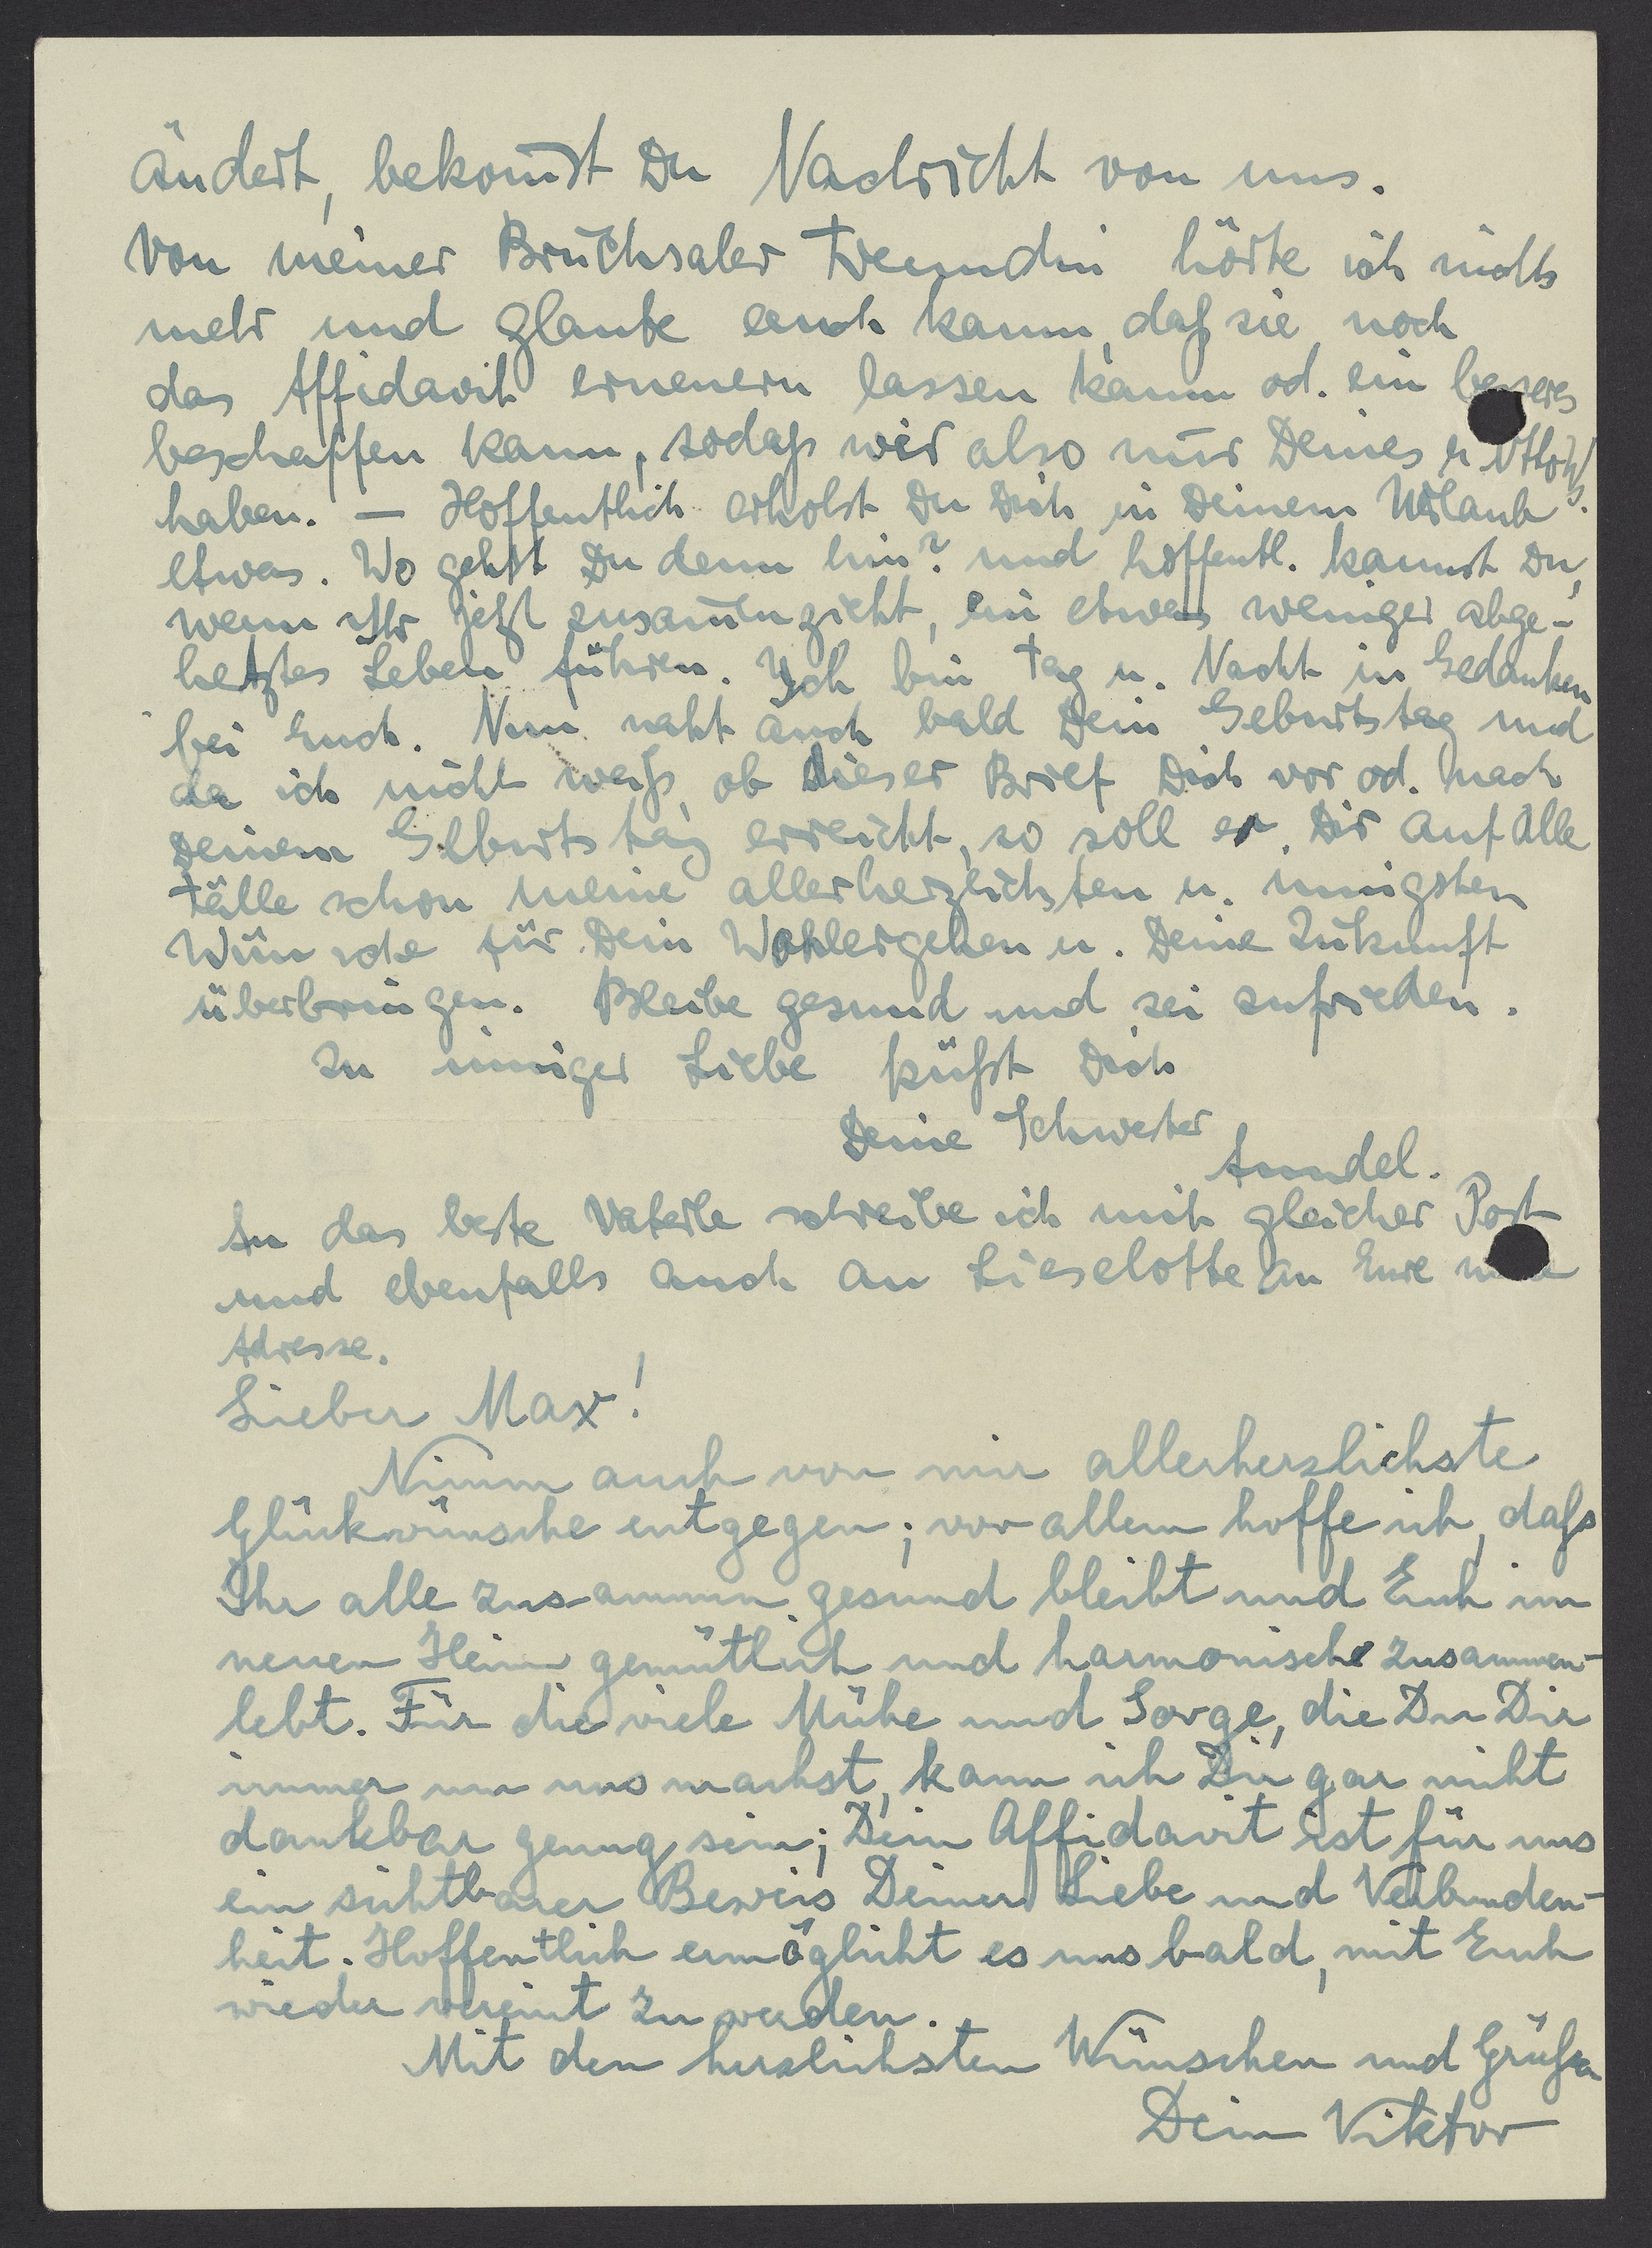 ändert, bekom̄st Du Nachricht von uns.
Von meiner Bruchsaler Freundin hörte ich nichts
mehr und glaube auch kaum, daß sie noch
das Affidavit erneuern lassen kann od. ein besseres
beschaffen kann, sodaß wir also nur Deines u. Ottos
haben. – Hoffentlich erholst Du Dich in Deinem Urlaub
etwas. Wo gehst Du denn hin? und hoffentl. kannst Du,
wenn Ihr jetzt zusam̄enzieht, ein etwas weniger abge-
hetztes Leben führen. Ich bin Tag u. Nacht in Gedanken
bei Euch. Nun naht auch bald Dein Geburtstag und
da ich nicht weiß, ob dieser Brief Dich vor od. nach
Deinem Geburtstag erreicht, so soll er Dir auf alle
Fälle schon meine allerherzlichsten u. innigsten
Wünsche für Dein Wohlergehen u. Deine Zukunft
überbringen. Bleibe gesund und sei zufrieden.
In inniger Liebe küßt Dich
Deine Schwester
Anndel.
An das beste Vaterle schreibe ich mit gleicher Post
und ebenfalls auch an Lieselotte an Eure neue
Adresse.
Lieber Max!
Nimm auch von mir allerherzlichste
Glückwünsche entgegen; vor allem hoffe ich, daß
Ihr alle zusammen gesund bleibt und Euch im
neuen Heim gemütlich und harmonisch zusammen-
lebt. Für die viele Mühe und Sorge, die Du Dir
immer um uns machst, kann ich Dir gar nicht
dankbar genug sein; Dein Affidavit ist für uns
ein sichtbarer Beweis Deiner Liebe und Verbunden-
heit. Hoffentlich ermöglicht es uns bald, mit Euch
wieder vereint zu werden.
Mit den herzlichsten Wünschen und Grüßen
Dein Viktor